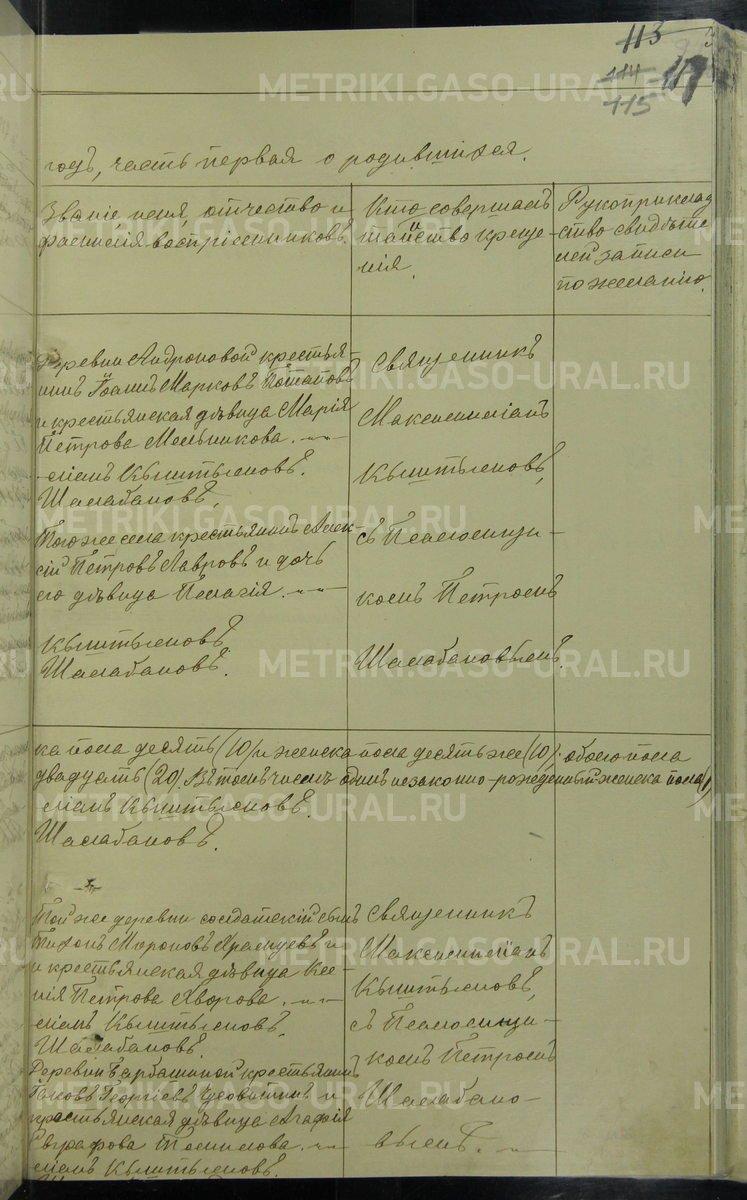 113
114
115
117
годъ, часть первая о родившихся.
Званіе, имя, отчество и
фамилія воспріемниковъ.
Кто совершалъ
таинство креще-
нія.
Рукоприклад
ство свидѣте
лей записи
по желанію.
Деревни Андроновой крестья-
нинъ Іоаннъ Марковъ Потаповъ
и крестьянская дѣвица Марія
Петрова Мельникова.
-миланъ Кыштымовъ.
Шалабановъ.
Того же села крестьянинъ Алек-
сій Петровъ Лавровъ и дочь
его дѣвица Пелагія.
Кыштымовъ.
Шалабановъ.
Священникъ
Максимиліанъ
Кыштымовъ,
съ Псаломщи-
комъ Петромъ
Шалабановымъ.
ка пола десять (10) и женска пола десять же (10), обоего пола
двадцать (20). Въ томъ числѣ одинъ незаконно-рожденный женска пола (1)
-міанъ Кыштымовъ.
Шалабановъ.
Той же деревни солдатскій сынъ
Тихонъ Мироновъ и
и крестьянская дѣвица Ксе-
нія Петрова Хворова.
-міанъ Кыштымовъ.
Шалабановъ.
Деревни Барбашиной крестьянинъ
Іаковъ Георгіевъ и
крестьянская дѣвица Агафія
Евграфова
-міанъ Кыштымовъ.
Священникъ
Максимиліанъ
Кыштымовъ,
съ Псаломщи-
комъ Петромъ
Шалабано-
вымъ.
METRIKI.GASO-URAL.RU